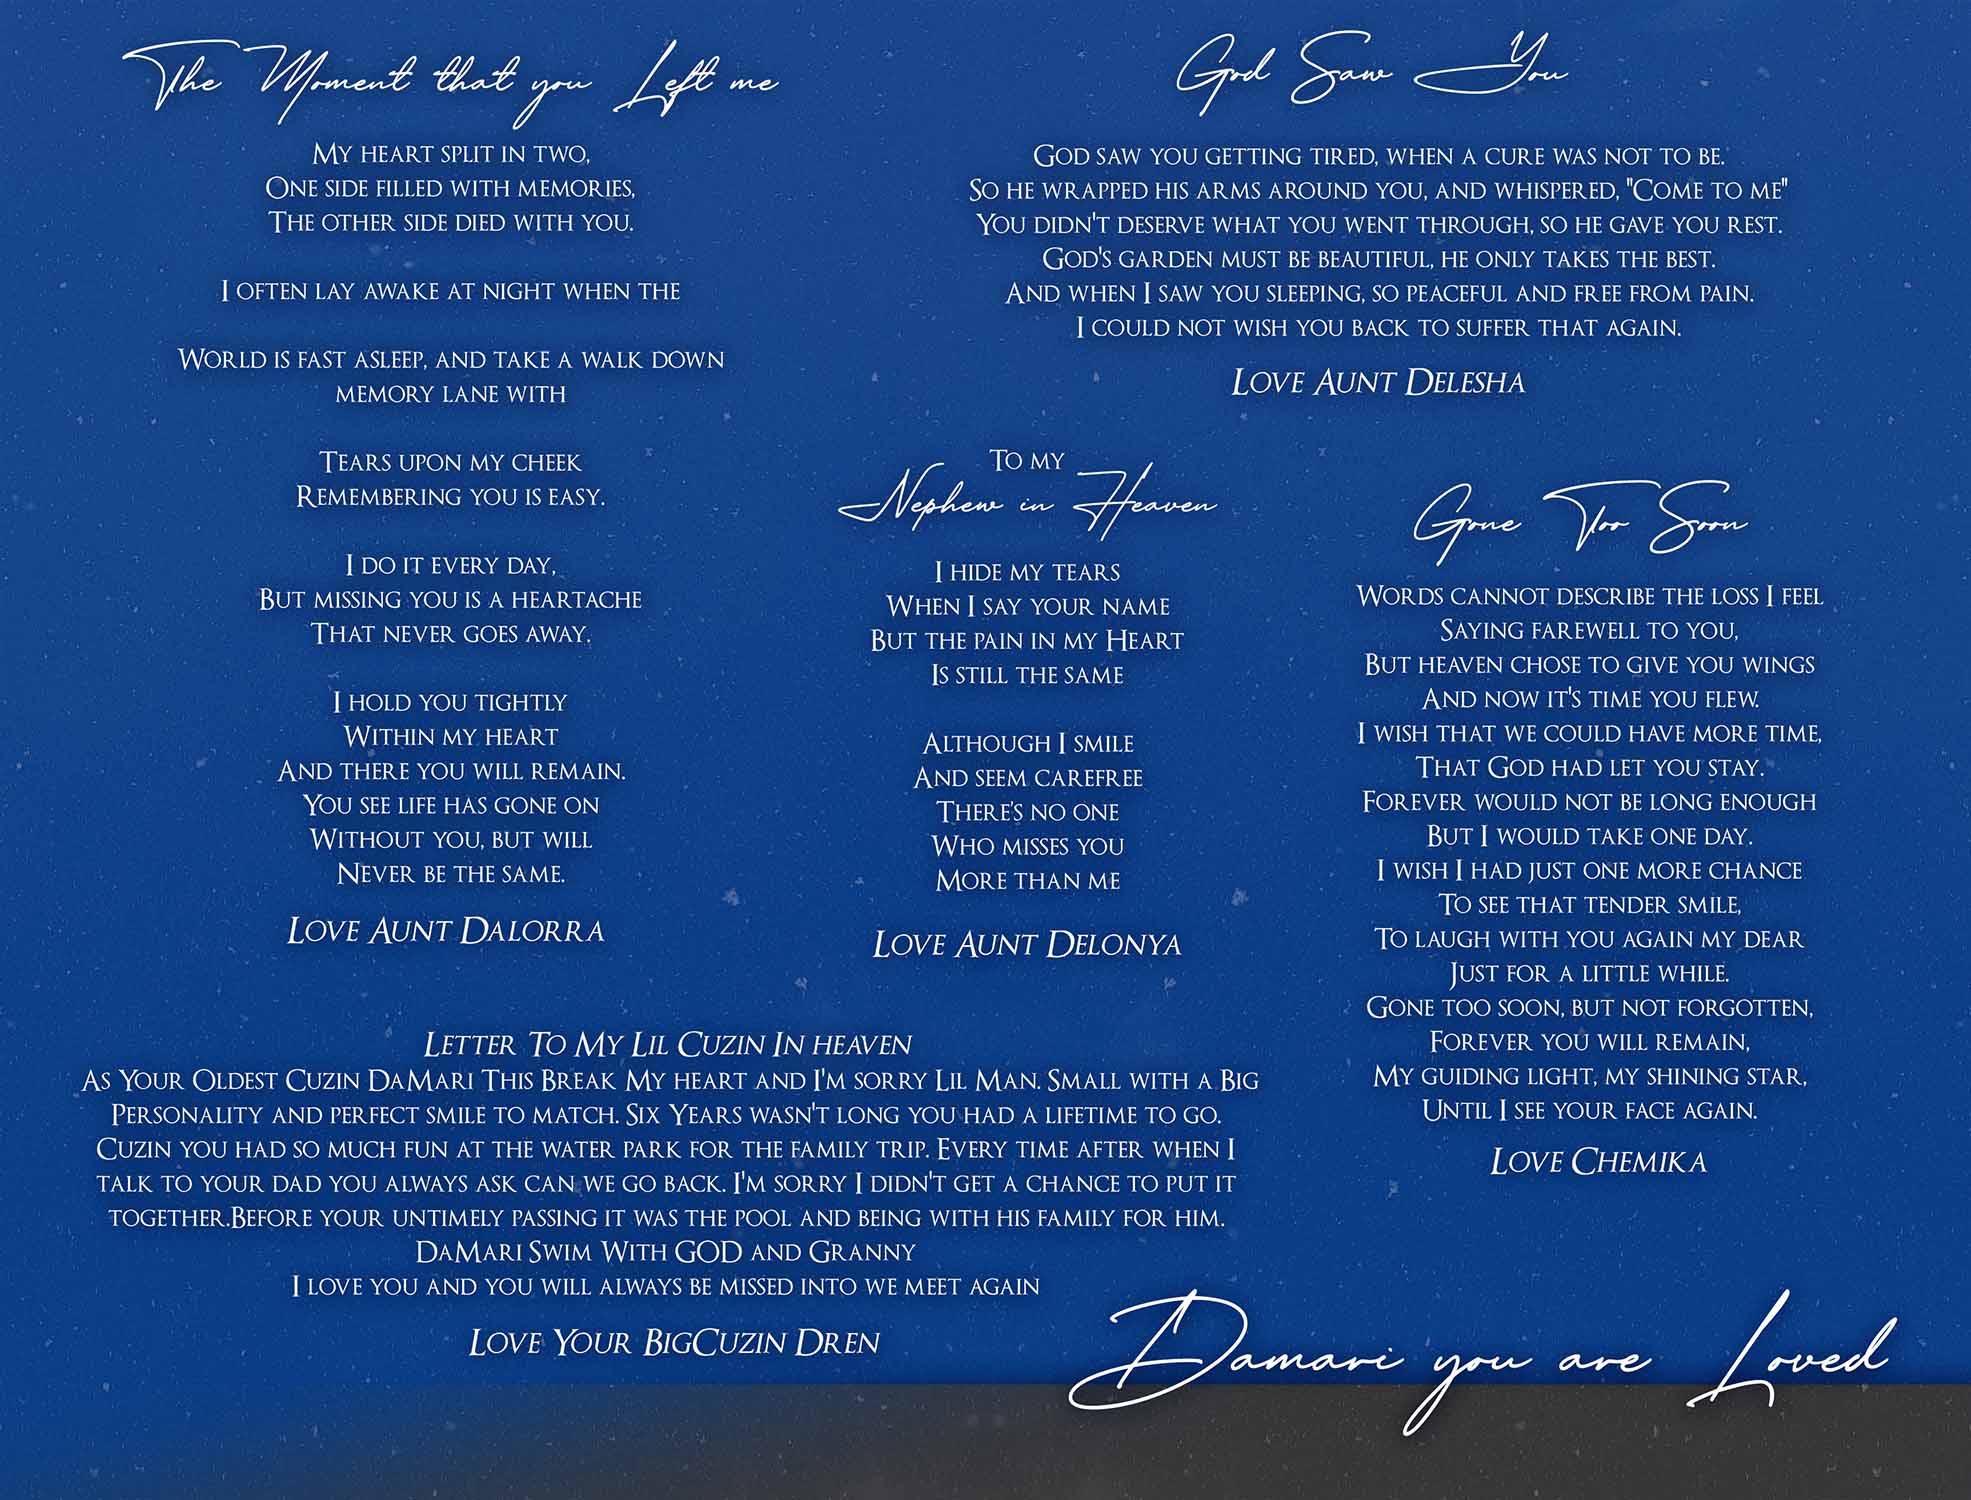 The Moment that you Left me
My heart split in two,
One side filled with memories,
The other side died with you.
I often lay awake at night when the
World is fast asleep, and take a walk down
memory lane with
Tears upon my cheek
Remembering you is easy.
I do it every day,
But missing you is a heartache
That never goes away.
I hold you tightly
Within my heart
And there you will remain.
You see life has gone on
Without you, but will
Never be the same.
Love Aunt Dalorra
God Saw You
God saw you getting tired, when a cure was not to be.
So he wrapped his arms around you, and whispered, "Come to me"
You didn't deserve what you went through, so he gave you rest.
God's garden must be beautiful, he only takes the best.
And when I saw you sleeping, so peaceful and free from pain.
I could not wish you back to suffer that again.
Love Aunt Delesha
To my
Nephew in Heaven
I hide my tears
When I say your name
But the pain in my Heart
Is still the same
Although I smile
And seem carefree
There's no one
Who misses you
More than me
Love Aunt Delonya
Gone Too Soon
Words cannot describe the loss I feel
Saying farewell to you,
But heaven chose to give you wings
And now it's time you flew.
I wish that we could have more time,
That God had let you stay.
Forever would not be long enough
But I would take one day.
I wish I had just one more chance
To see that tender smile,
To laugh with you again my dear
Just for a little while.
Gone too soon, but not forgotten,
Forever you will remain,
My guiding light, my shining star,
Until I see your face again.
Love Chemika
Letter To My Lil Cuzin In heaven
As Your Oldest Cuzin DaMari This Break My heart and I'm sorry Lil Man. Small with a Big
Personality and perfect smile to match. Six Years wasn't long you had a lifetime to go.
Cuzin you had so much fun at the water park for the family trip. Every time after when I
talk to your dad you always ask can we go back. I'm sorry I didn't get a chance to put it
together.Before your untimely passing it was the pool and being with his family for him.
DaMari Swim With GOD and Granny
I love you and you will always be missed into we meet again
Love Your BigCuzin Dren
Damari you are Loved